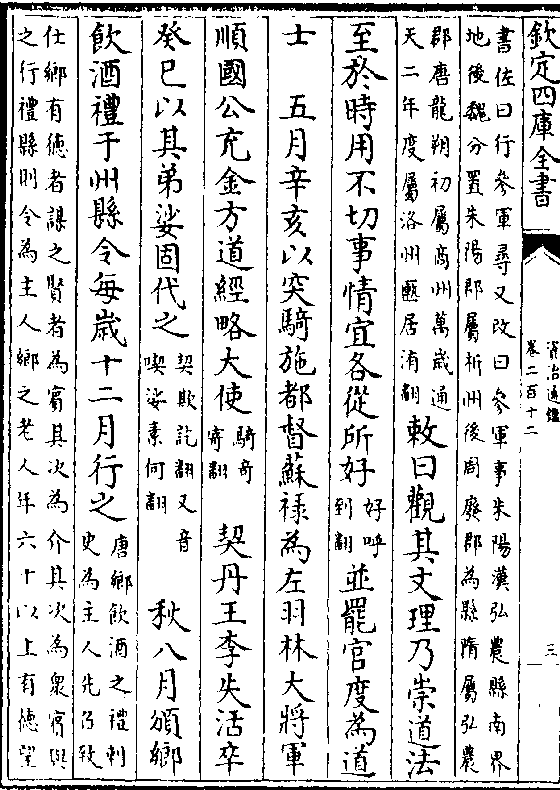 欽定四庫全書
資治通鑑
卷二百十二
三
書佐曰行參軍尋又改曰參軍事朱陽漢弘農縣南界
地後魏分置朱陽郡屬析州後周廢郡為縣隋屬弘農
郡唐龍朔初屬商州萬歲通
天二年度屬洛州匭居洧翻
敕曰觀其文理乃崇道法
至於時用不切事情宜各從所好
好呼
到翻
並罷官度為道
士 五月辛亥以突騎施都督蘇祿為左羽林大將軍
順國公充金方道經略大使
騎奇
寄翻
契丹王李失活卒
癸巳以其弟娑固代之
契欺訖翻又音
喫娑素何翻
秋八月頒鄉
飲酒禮于州縣令每歲十二月行之
唐鄉飲酒之禮刺
史為主人先乃致
仕鄉有德者謀之賢者為賓其次為介其次為衆賓與
之行禮縣則令為主人鄉之老人年六十以上有德望